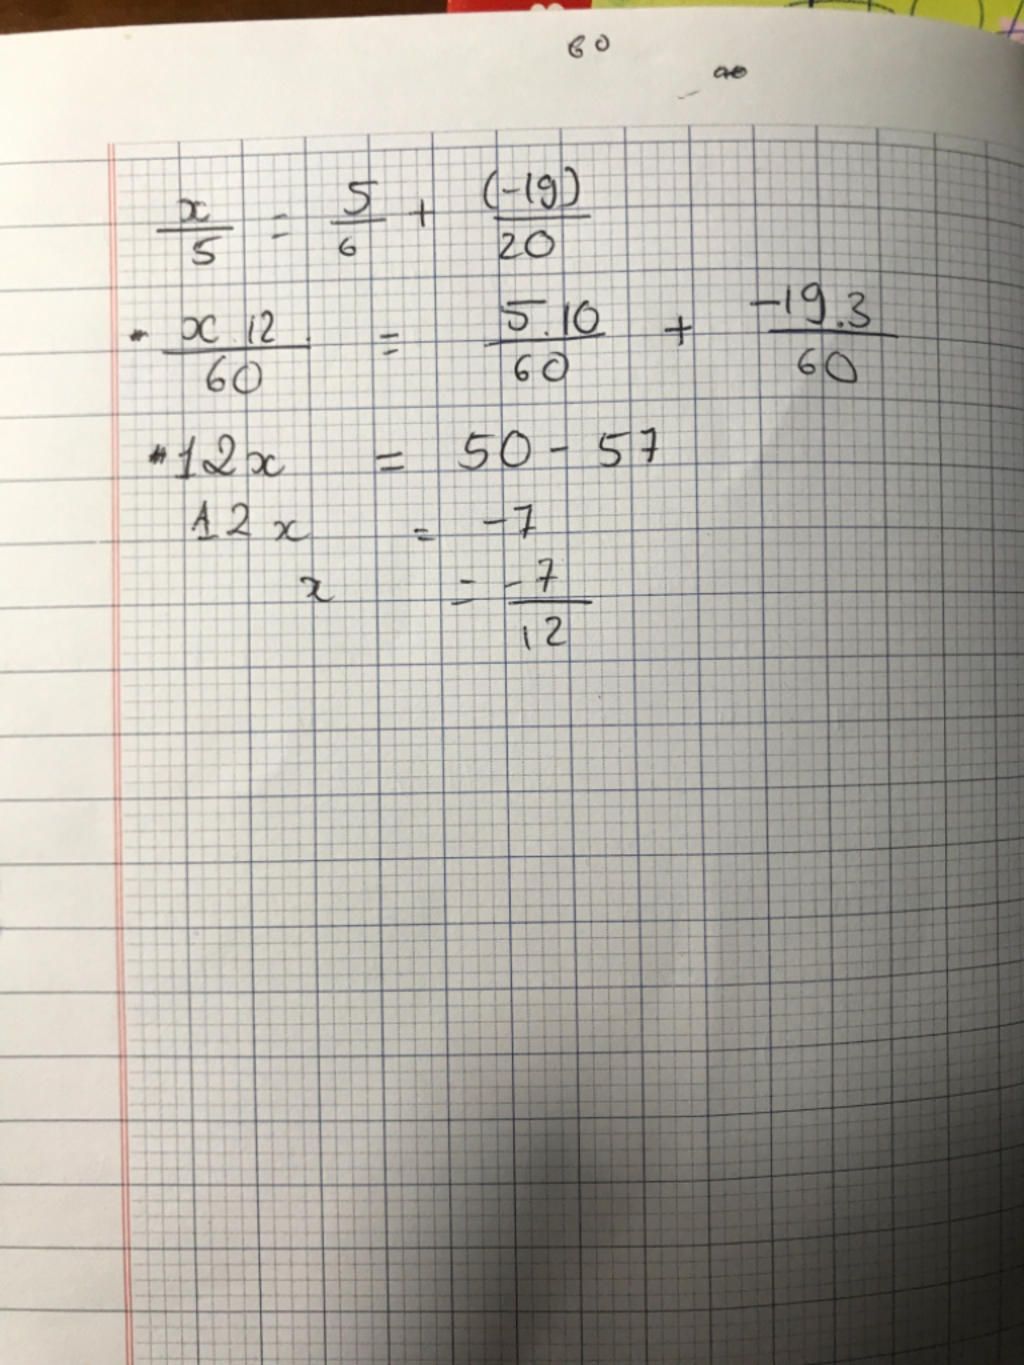 60
x/5 = 5/6 + (-19)/20
x.12/60 = 5.10/60 + -19.3/60
12x = 50 - 57
12x = -7
x = -7/12